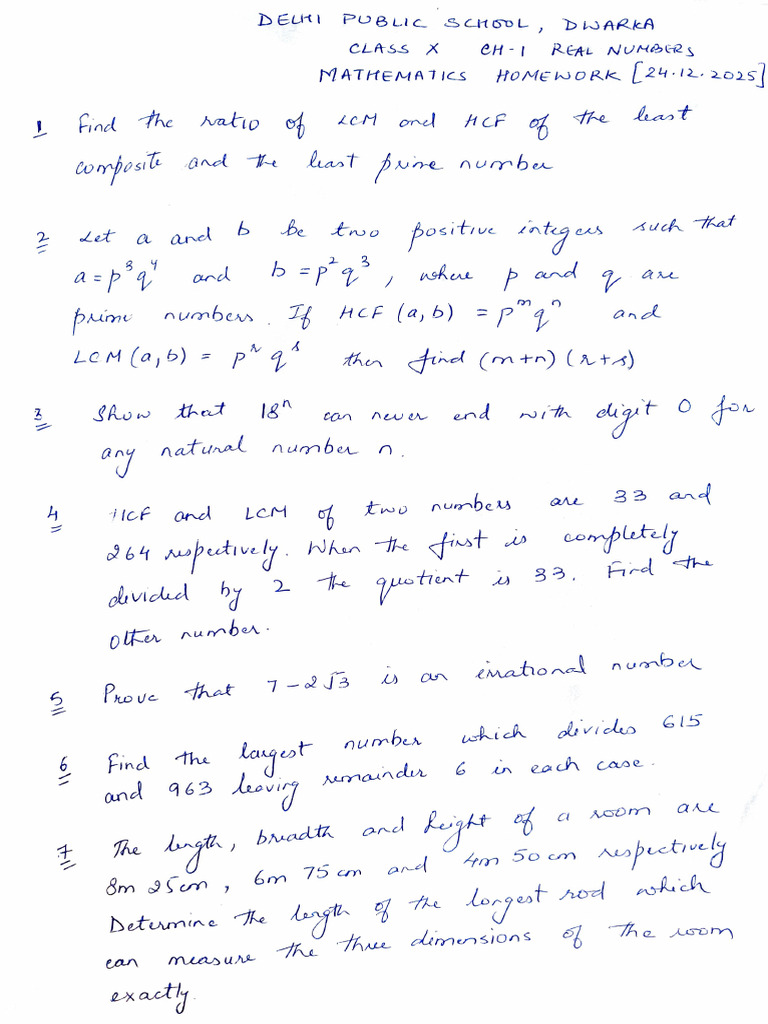 DELHI PUBLIC SCHOOL, DWARKA
CLASS X CH-1 REAL NUMBERS
MATHEMATICS HOMEWORK [24.12.2025]
1 Find the ratio of LCM and HCF of the least
composite and the least prime number
2 Let a and b be two positive integers such that
a = p³q⁴ and b = p²q³, where p and q are
prime numbers. If HCF (a,b) = pᵐqⁿ and
LCM (a,b) = pʳqˢ then find (m+n) (r+s)
3 Show that 18ⁿ can never end with digit 0 for
any natural number n.
4 HCF and LCM of two numbers are 33 and
264 respectively. When the first is completely
divided by 2 the quotient is 33. Find the
other number.
5 Prove that 7 - 2√3 is an irrational number
6 Find the largest number which divides 615
and 963 leaving remainder 6 in each case.
7 The length, breadth and height of a room are
8m 25cm, 6m 75 cm and 4m 50 cm respectively
Determine the length of the longest rod which
can measure the three dimensions of the room
exactly.